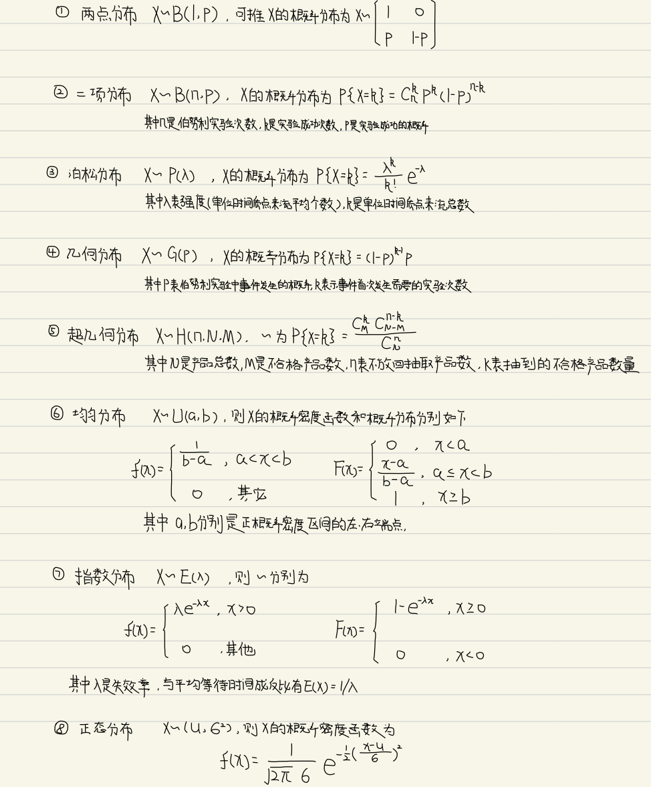 ① 两点分布 X~B(1,p), 可推X的概率分布为 X~[1 0
p 1-p]
② 二项分布 X~B(n,p), X的概率分布为 P{X=k}=C_n^k p^k (1-p)^{n-k}
其中n是伯努利实验次数, k是实验成功次数, p是实验成功的概率
③ 泊松分布 X~P(λ), X的概率分布为 P{X=k}=λ^k/k! e^{-λ}
其中λ表强度(单位时间质点来流平均个数), k是单位时间质点来流总数
④ 几何分布 X~G(p), X的概率分布为P{X=k}=(1-p)^{k-1}p
其中P表伯努利实验中事件发生的概率, k表示事件首次发生需要的实验次数
⑤ 超几何分布 X~H(n.N.M), ~为P{X=k}=C_M^k C_{N-M}^{n-k}/C_N^n
其中N是产品总数, M是不合格产品数, n表不放回抽取产品数, k表抽到的不合格产品数量
⑥ 均匀分布 X~U(a,b), 则X的概率密度函数和概率分布分别如下
f(x)={1/(b-a), a<x<b F(x)={0, x<a
(x-a)/(b-a), a≤x<b
0, 其它 1, x≥b
其中 a,b分别是正概率密度区间的左.右端点.
⑦ 指数分布 X~E(λ), 则~分别为
f(x)={λe^{-λx}, x>0 F(x)={1-e^{-λx}, x≥0
0, 其他 0, x<0
其中λ是失效率, 与平均等待时间成反比有E(X)=1/λ
⑧ 正态分布 X~(u,6²), 则X的概率密度函数为
f(x)=1/(√2π 6) e^{-1/2((x-u)/6)²}